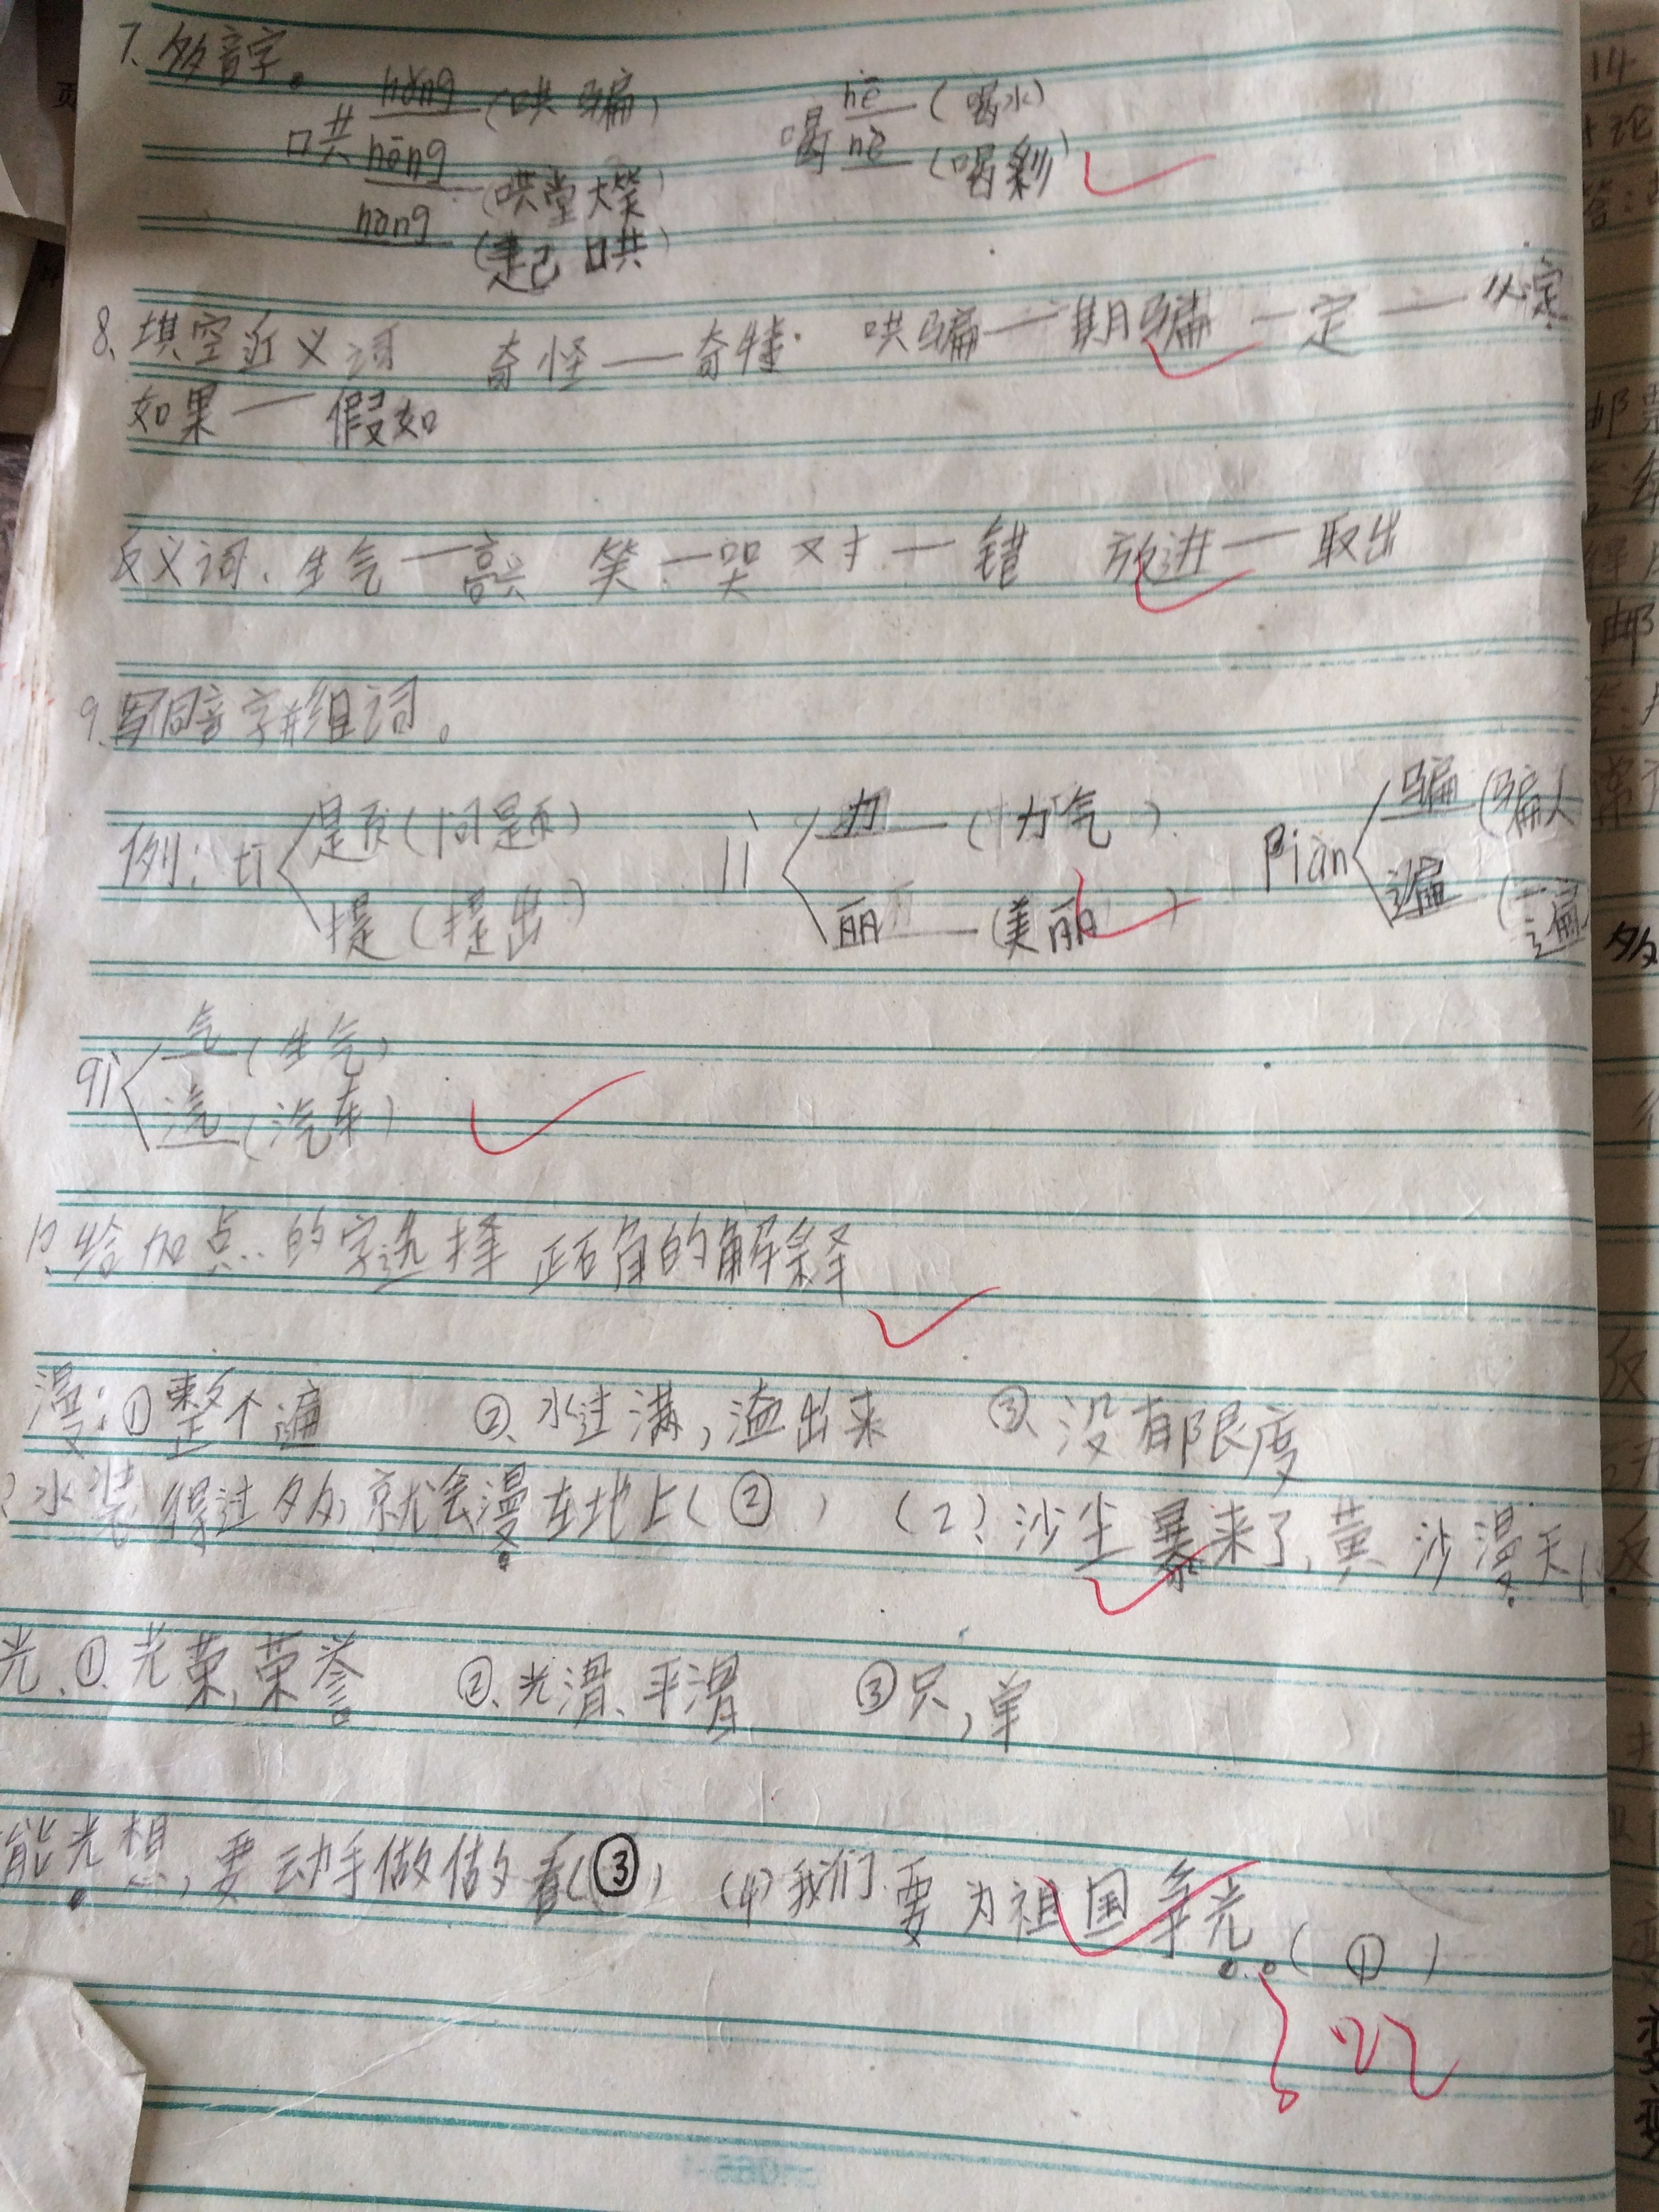 7、多音字。
哄 hǒng (哄骗) 喝 hē (喝水)
hōng (哄堂大笑) hè (喝彩)
hòng (起哄)
8、填空近义词 奇怪—奇特 哄骗—期骗 一定—必定
如果—假如
反义词、生气—高兴 笑—哭 对—错 放进—取出
9、写同音字并组词。
例: tí 题(问题) lì 力(力气) piàn 骗(骗人
提(提出) 丽(美丽) 遍(一遍
qì 气(生气)
汽(汽车)
给加点的字选择正确的解释
漫:①整个遍 ②、水过满,溢出来 ③、没有限度
水装得过多,就会漫在地上(②) (2)、沙尘暴来了,黄沙漫天
光、①、光荣,荣誉 ②、光滑、平滑 ③只,单
能光想,要动手做做看(③) (4)我们要为祖国争光(①)